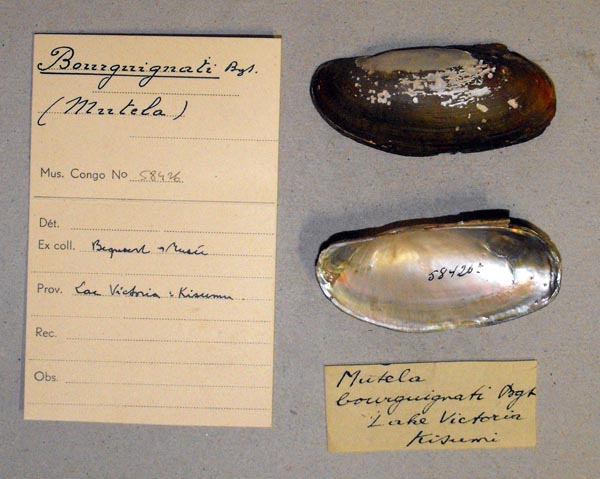 Bourguignati Bgt.
(Mutela)
Mus. Congo No 58426
Dét.
Ex coll. Bequaert → Musée
Prov. Lac Victoria : Kisumu.
Rec.
Obs.
58426
Mutela
bourguignati Bgt
Lake Victoria
Kisumi